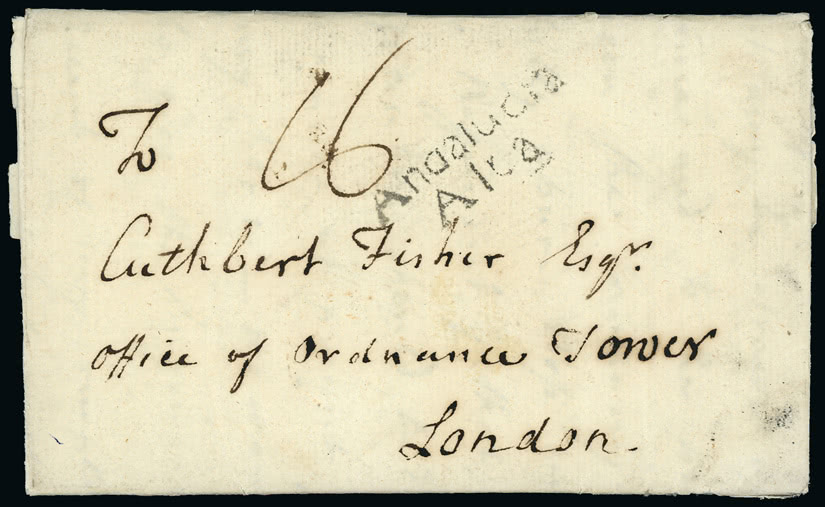 To
16
Andalucia
Alta
Cuthbert Fisher Esqr.
Office of Ordnance Tower
London